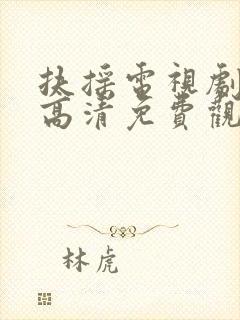 扶摇電視劇
高清免費觀
林虎